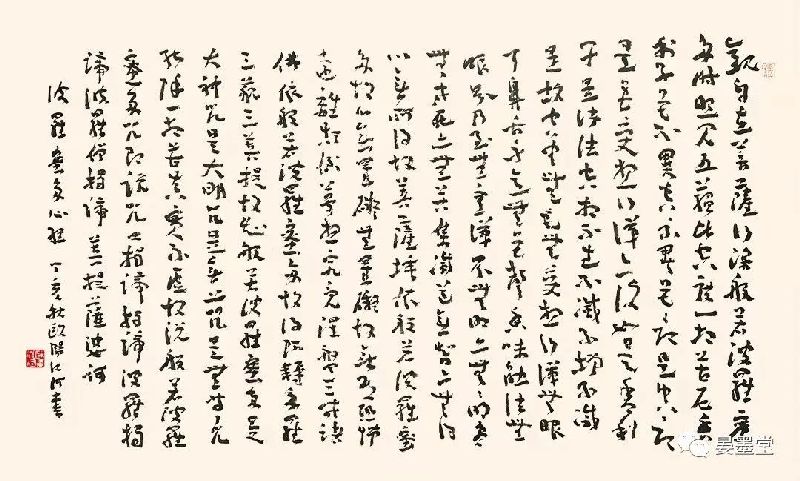 觀自在菩薩行深般若波羅蜜
多時照見五蘊皆空度一切苦厄舍
利子色不異空空不異色色即是空空即
是色受想行識亦復如是舍利
子是諸法空相不生不滅不增不減
是故空中無色無受想行識無眼
耳鼻舌身意無色聲香味觸法無
眼界乃至無意識界無無明亦無無明盡
無老死亦無苦集滅道無智亦無得
以無所得故菩薩埵依般若波羅蜜
多故心無罣礙無罣礙故無有恐怖
遠離顛倒夢想究竟涅槃三世諸
佛依般若波羅蜜多故得阿耨多羅
三藐三菩提故知般若波羅蜜多是
大神咒是大明咒是無上咒是無等等咒
能除一切苦真實不虛故說般若波羅
蜜多咒即說咒曰揭諦揭諦波羅揭
諦波羅僧揭諦菩提薩婆訶
波羅蜜多心經 丁亥秋歐陽江河書
晏墨堂